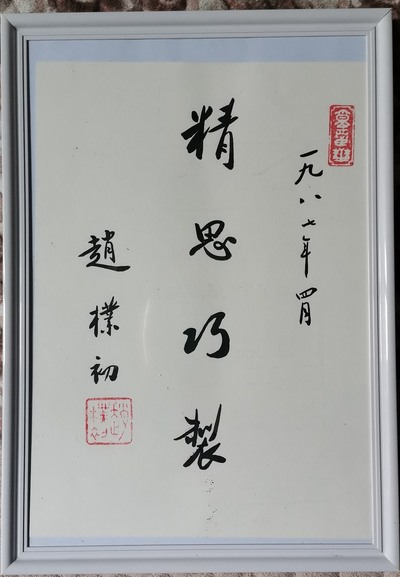 一九八七年四月
精思巧製
趙樸初
趙樸初